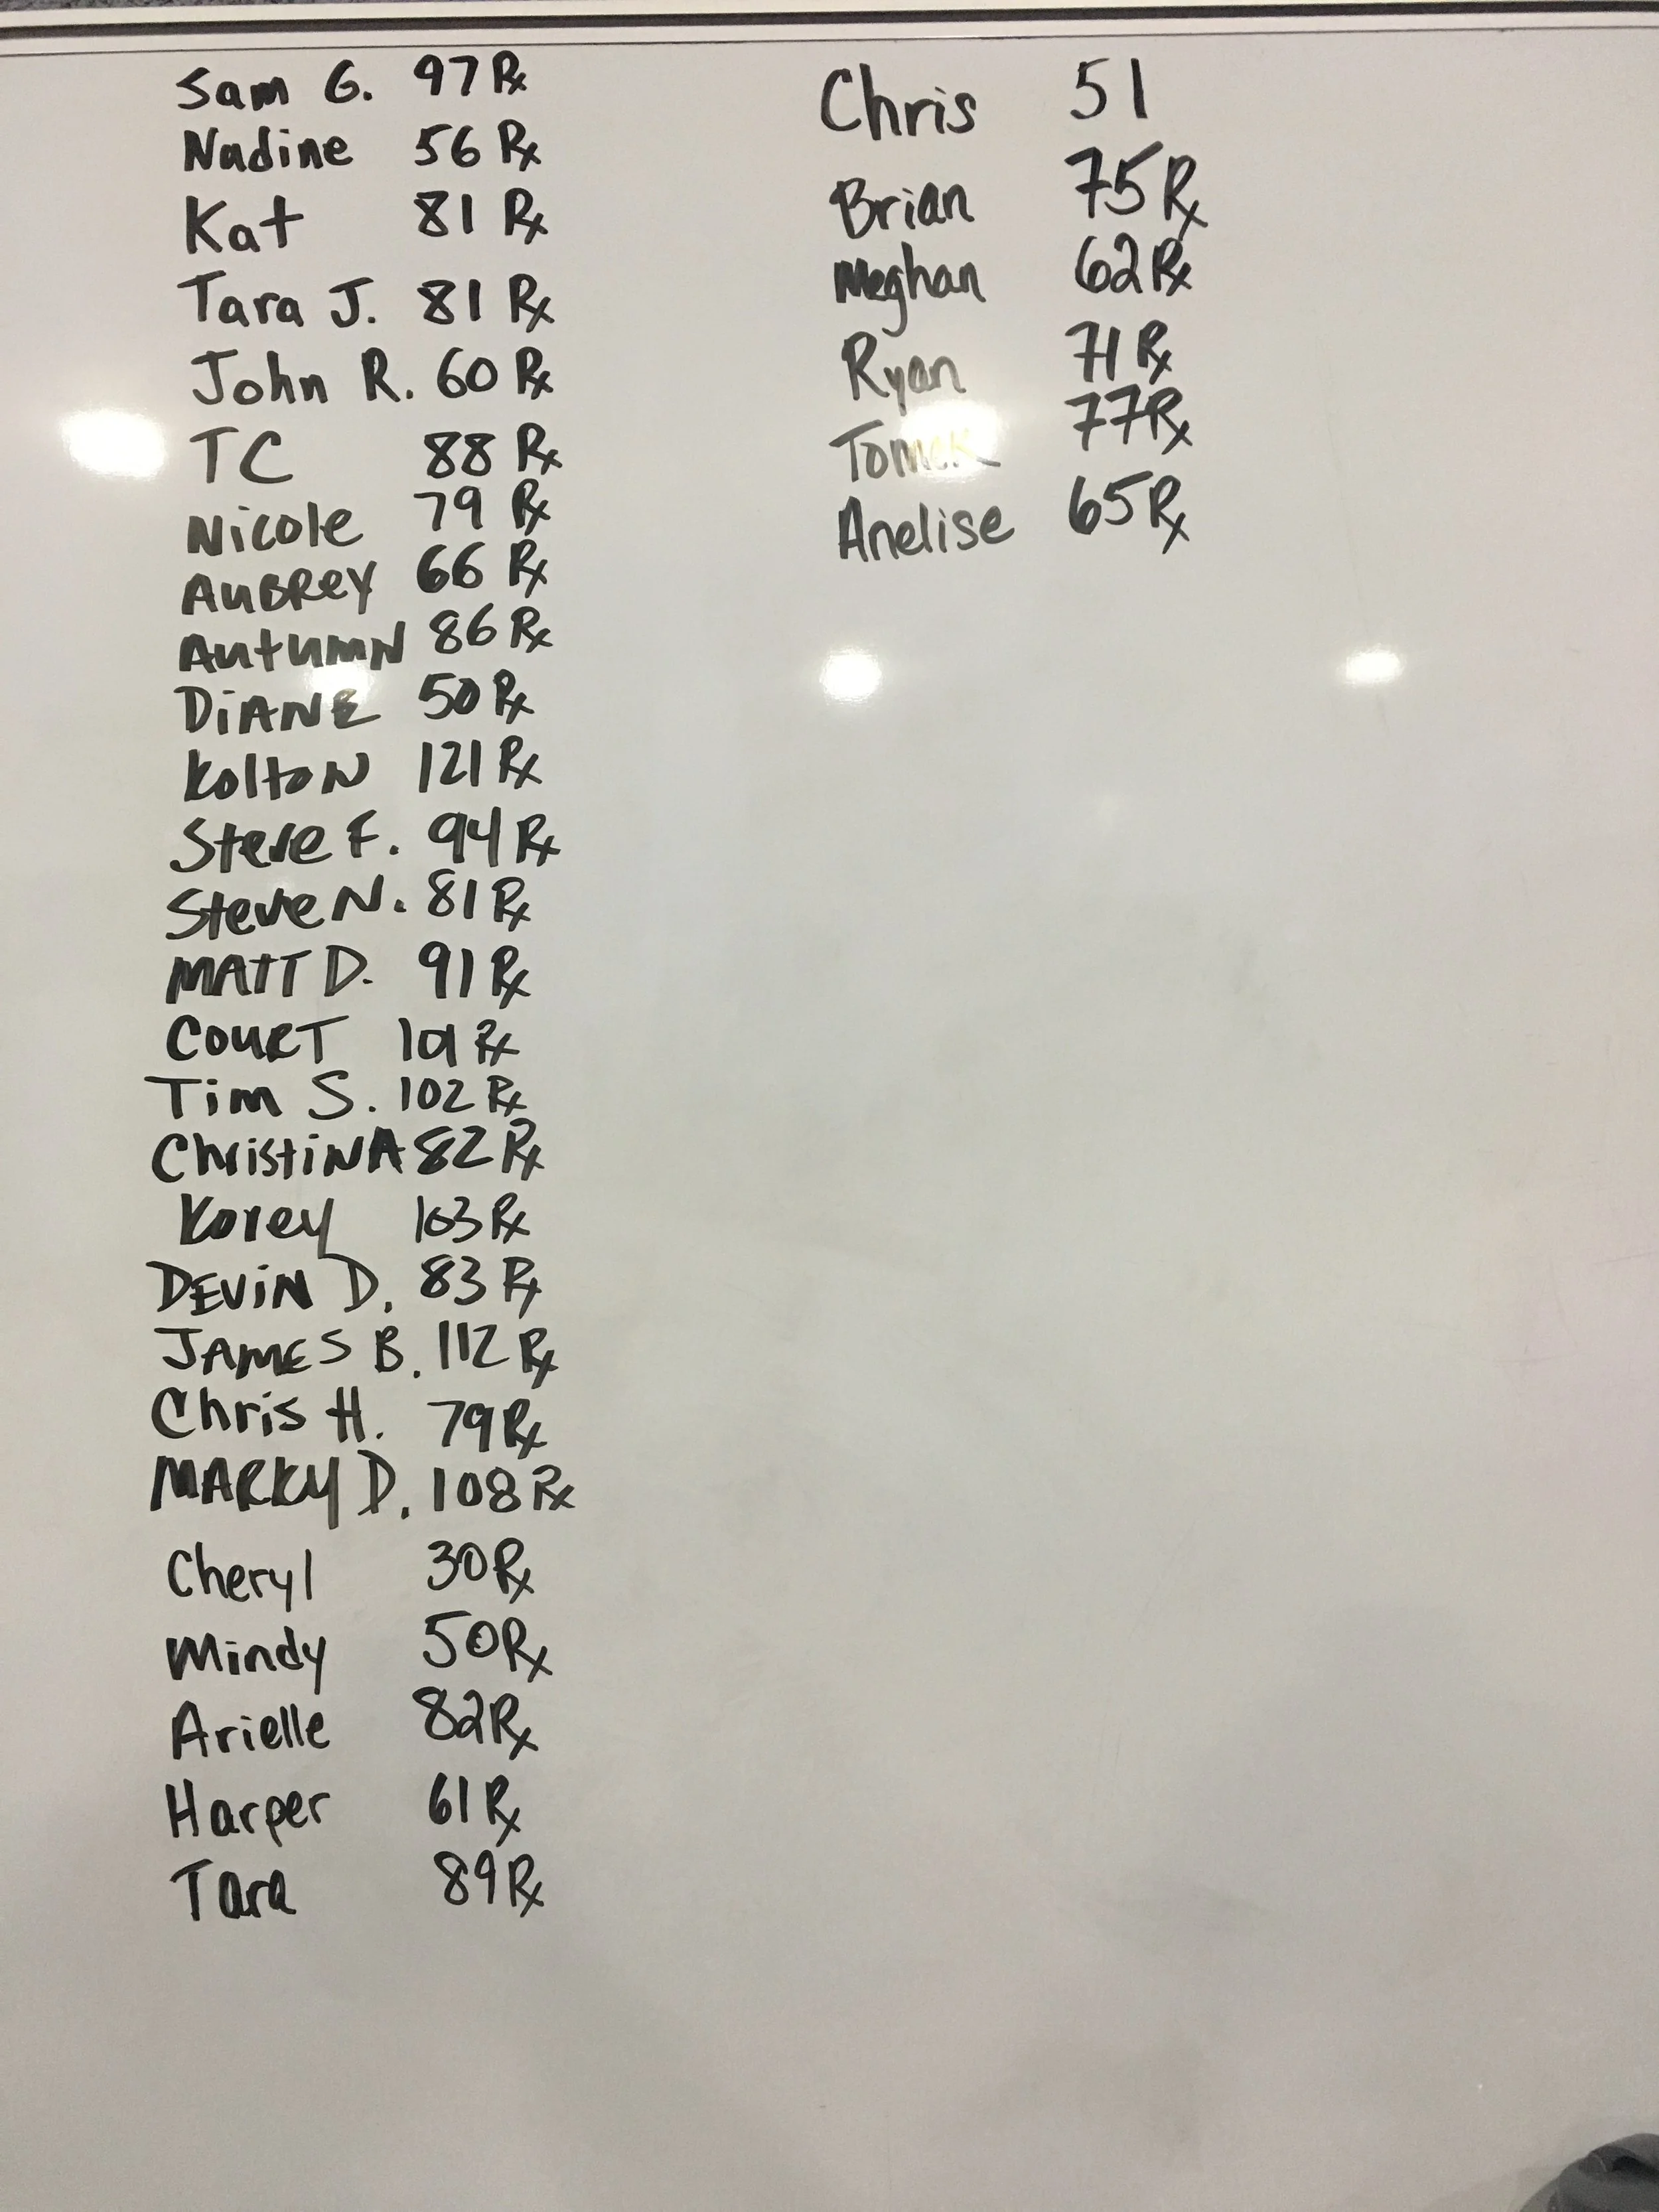 Sam G. 97 Rx
Nadine 56 Rx
Kat 81 Rx
Tara J. 81 Rx
John R. 60 Rx
TC 88 Rx
Nicole 79 Rx
AuBRey 66 Rx
AutumN 86 Rx
DiANE 50 Rx
KoltoN 121 Rx
Steve F. 94 Rx
Steve N. 81 Rx
MATT D. 91 Rx
COURT 101 Rx
Tim S. 102 Rx
ChristiNA 82 Rx
Korey 103 Rx
DEViN D. 83 Rx
JAMES B. 112 Rx
Chris H. 79 Rx
MARKY D. 108 Rx
Cheryl 30 Rx
Mindy 50 Rx
Arielle 82 Rx
Harper 61 Rx
Tara 89 Rx
Chris 51
Brian 75 Rx
Meghan 62 Rx
Ryan 71 Rx
Tomek 77 Rx
Anelise 65 Rx